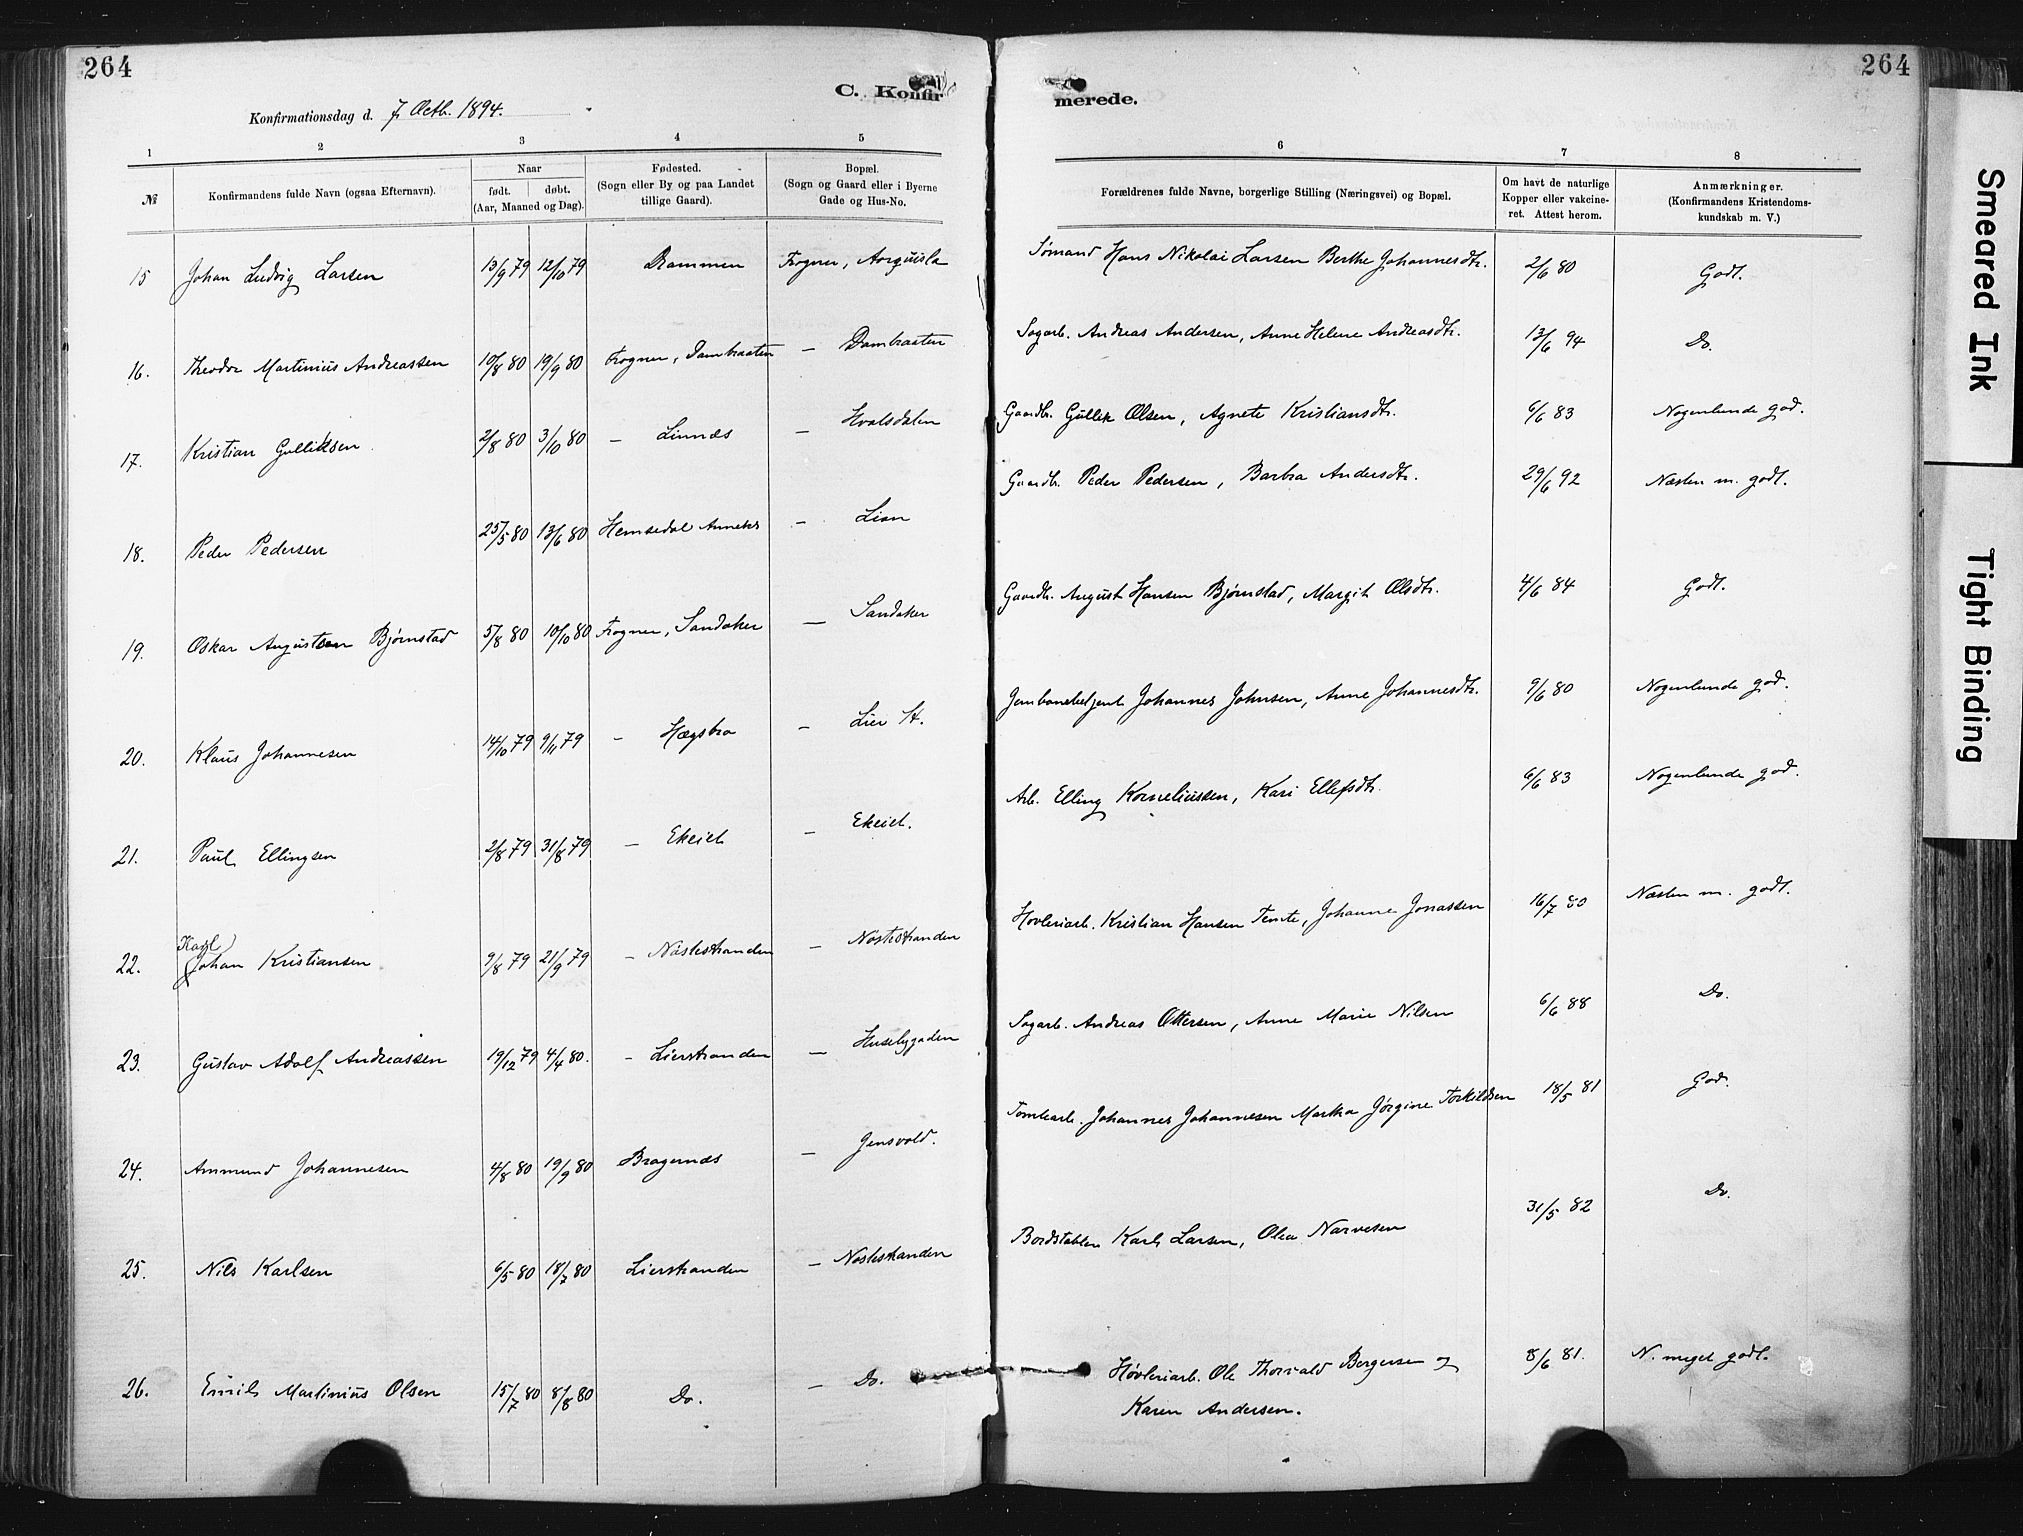 264
264
C. Konfir merede.
Konfirmationsdag d. 7. Octb. 1894.
1 2 3 4 5 6 7 8
№ Konfirmandens fulde Navn (ogsaa Efternavn). Naar født. døbt. (Aar, Maaned og Dag). Fødested. (Sogn eller By og paa Landet tillige Gaard). Bopæl. (Sogn og Gaard eller i Byerne Gade og Hus-No. Forældrenes fulde Navne, borgerlige Stilling (Næringsvei) og Bopæl. Om havt de naturlige Kopper eller vakcineret. Attest herom. Anmærkninger. (Konfirmandens Kristendomskundskab m. V.)
15 Johan Ludvig Larsen 13/9 79 12/10 79 Drammen Frogner, Sømand Hans Nikolai Larsen Berthe Johannesdtr. 2/6 80 Godt.
16. Theodor Martinius Andreassen 10/8 80 19/9 80 Frogner, Dambraaten — Dambraaten Sagarb. Andreas Andersen, Anne Helene Andreasdtr. 13/6 94 Do.
17. Kristian Gulliksen 2/8 80 3/10 80 — Linnæs — Hvalsdalen Gaardbr. Gullik Olsen, Agnete Kristiansdtr. 6/6 83 Nogenlunde god.
18. Peder Pedersen 25/5 80 13/6 80 Hemsedal Anneks — Lian Gaardbr. Peder Pedersen, Barbra Andersdtr. 29/6 92 Næsten m. godt.
19. Oskar Augustsen Bjørnstad 5/8 80 10/10 80 Frogner, Sandaker — Sandaker Gaardbr. August Hansen Bjørnstad, Margit Olsdtr. 4/6 84 Godt.
20. Klaus Johannesen 14/10 79 9/11 79 — Hægsbro — Lier St. Jernbanebetjent Johannes Johnsen, Anne Johannesdtr. 9/6 80 Nogenlunde god.
21. Paul Ellingsen 2/8 79 31/8 79 — Ekeiet — Ekeiet. Arb. Elling Korneliussen, Kari Ellefsdtr. 6/6 83 Nogenlunde god.
22. Karl Johan Kristiansen 9/8 79 21/9 79 — Nøstestranden — Nøstestranden Høvleriarb. Kristian Hansen Tente, Johanne Jonassen 16/7 80 Næsten m. godt.
23. Gustav Adolf Andreassen 19/12 79 4/4 80. — Lierstranden — Husebygaden Sagarb. Andreas Ottersen, Anne Marie Nilsen 6/6 88 Do.
24. Ammund Johannesen 4/8 80 19/9 80 Bragernæs — Gensvold. Tomtearb. Johannes Johannesen Martha Jørgine Torkildsen 18/5 81 God.
25. Nils Karlsen 6/5 80 18/7 80 Lierstranden — Nøstestranden Bordstabler Karl Larsen, Olea Narvesen 31/5 82 Do.
26. Emil Martinius Olsen 15/7 80 8/8 80 Do. — Do. Høvleriarb. Ole Thorvald Bergersen og 8/6 81. N. meget godt.
Karen Andersen.
Smeared Ink
Tight Binding